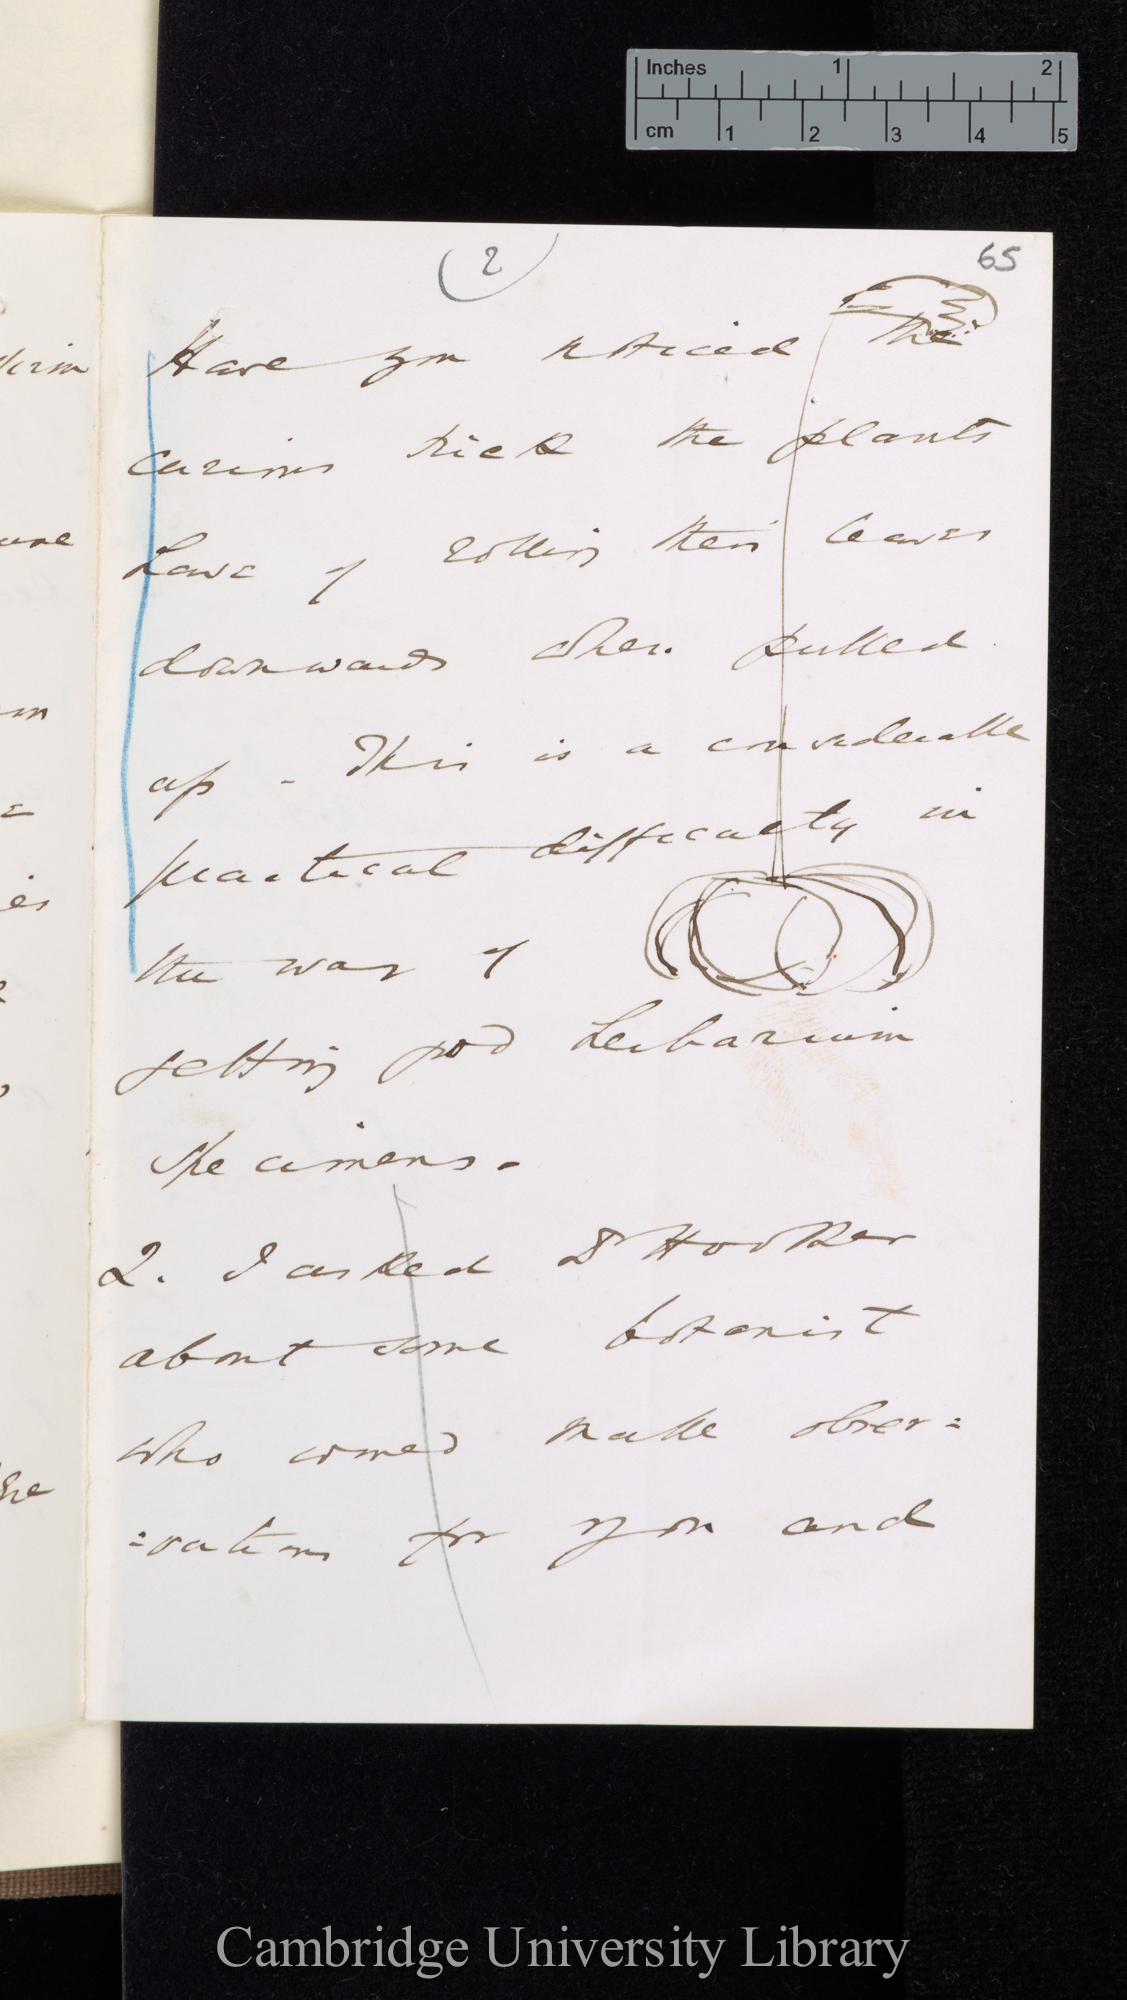 Inches 1 2
cm 1 2 3 4 5
2
65
Have you noticed the
curious trick the plants
have of rolling their leaves
downwards when pulled
up - This is a considerable
practical difficulty in
the way of
getting good herbarium
specimens.
2. I asked Dr Hooker
about some botanist
who would make obser=
=vations for you and
Cambridge University Library